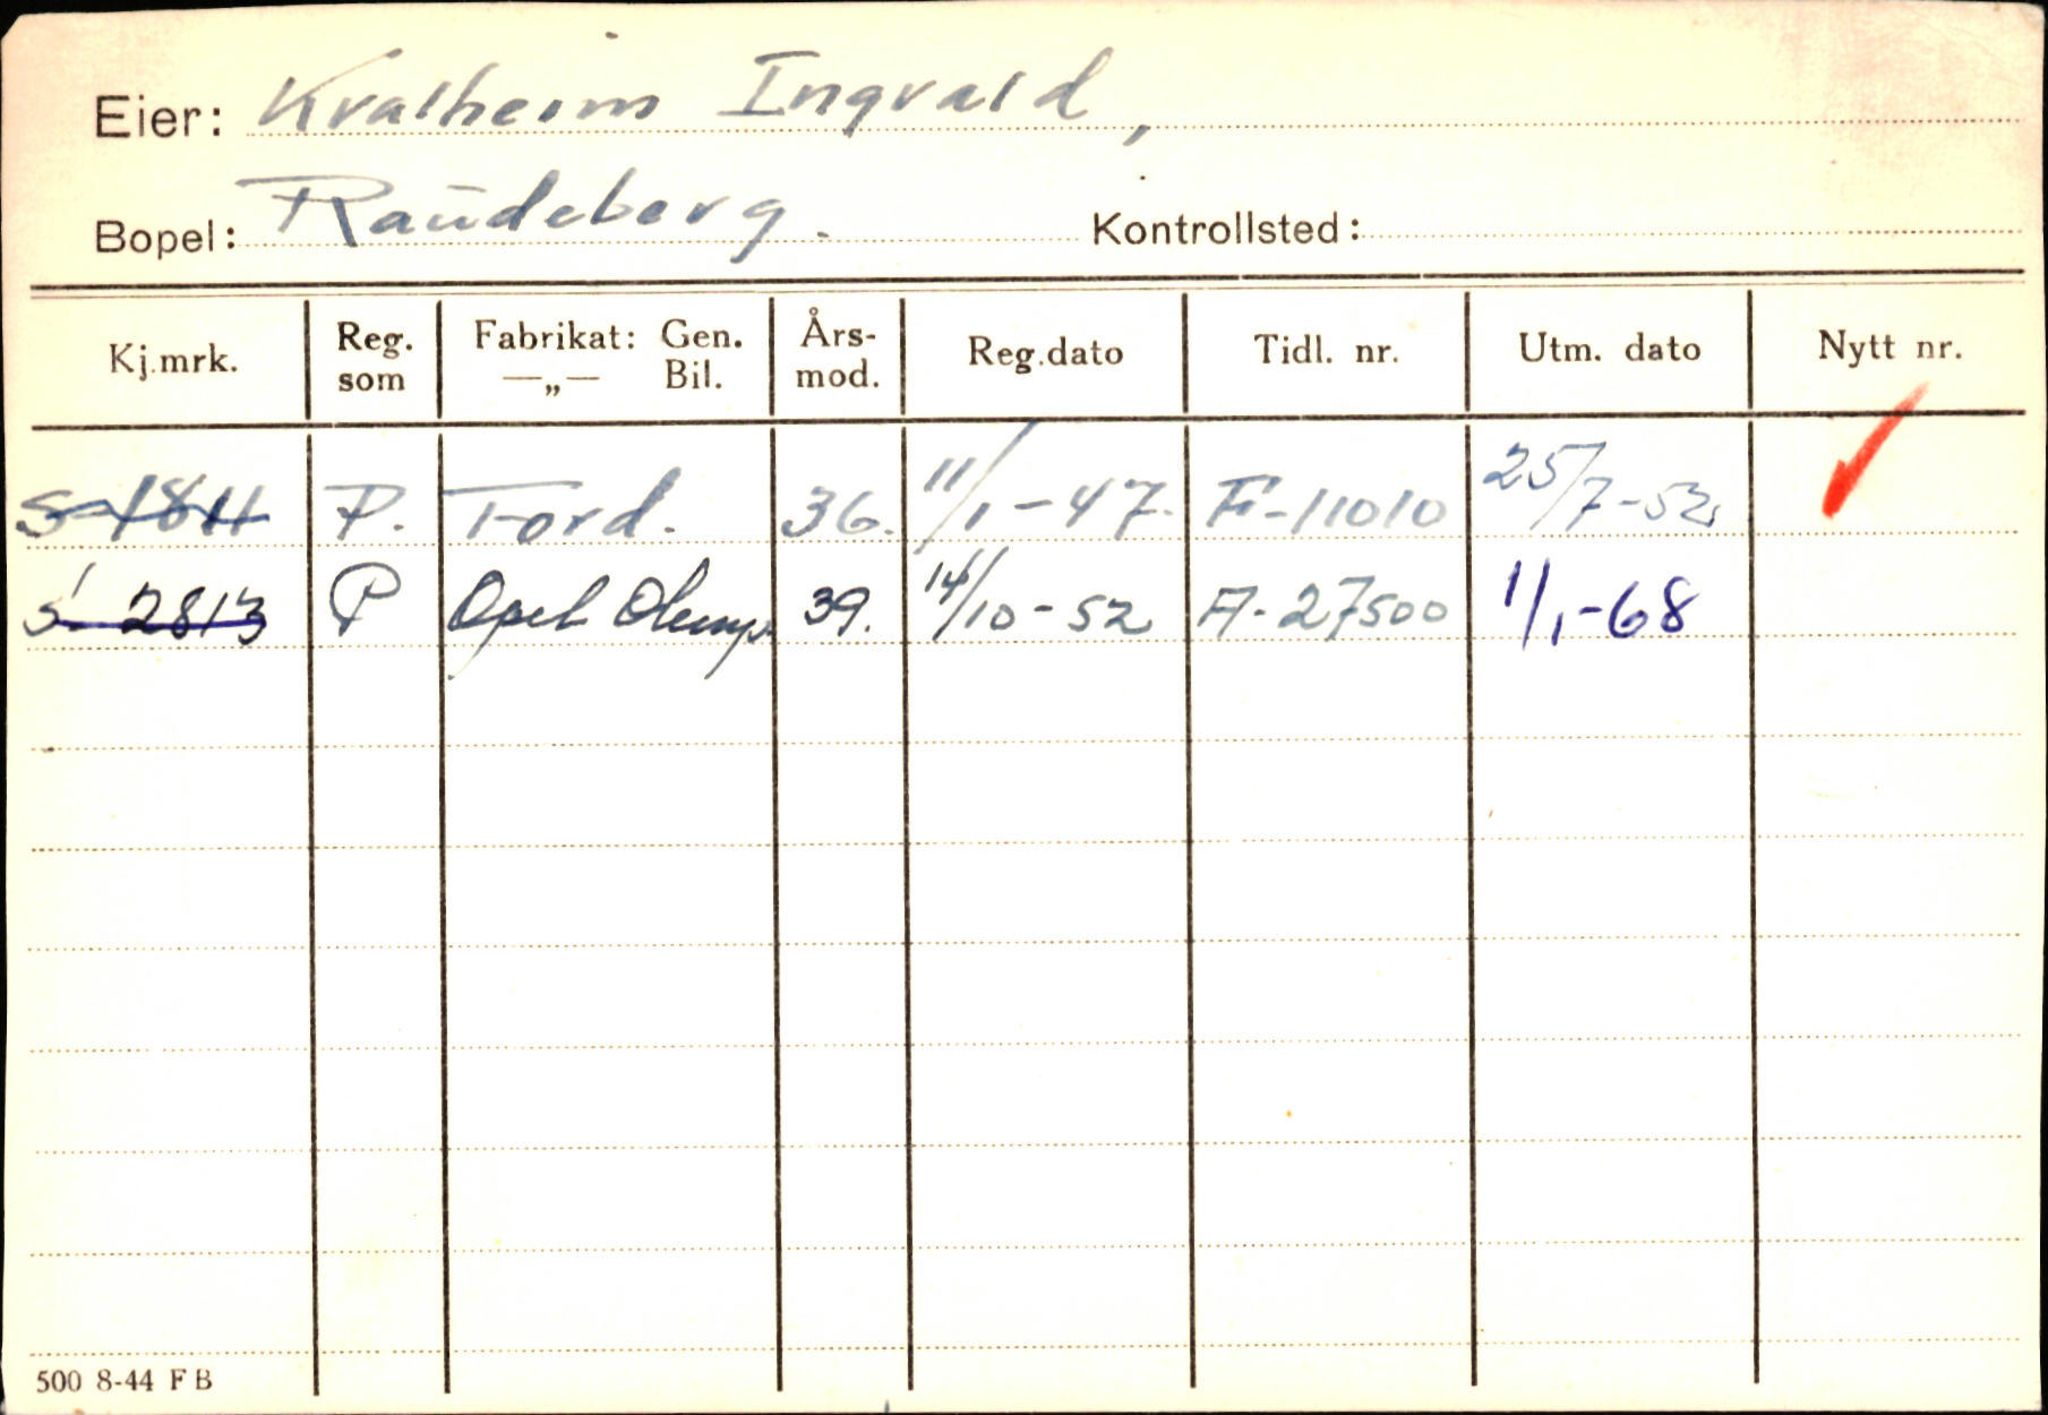 Eier: Kvalheim Ingvald,
Bopel: Raudeberg. Kontrollsted:
Kj.mrk. Reg. som Fabrikat: Gen. —„— Bil. Års-mod. Reg.dato Tidl. nr. Utm. dato Nytt nr.
S-1811 P. Ford. 36. 11/1-47. F-11010 25/7-52
S-2813 P Opel Olymp. 39. 14/10-52 A-27500 11/1-68
500 8-44 FB